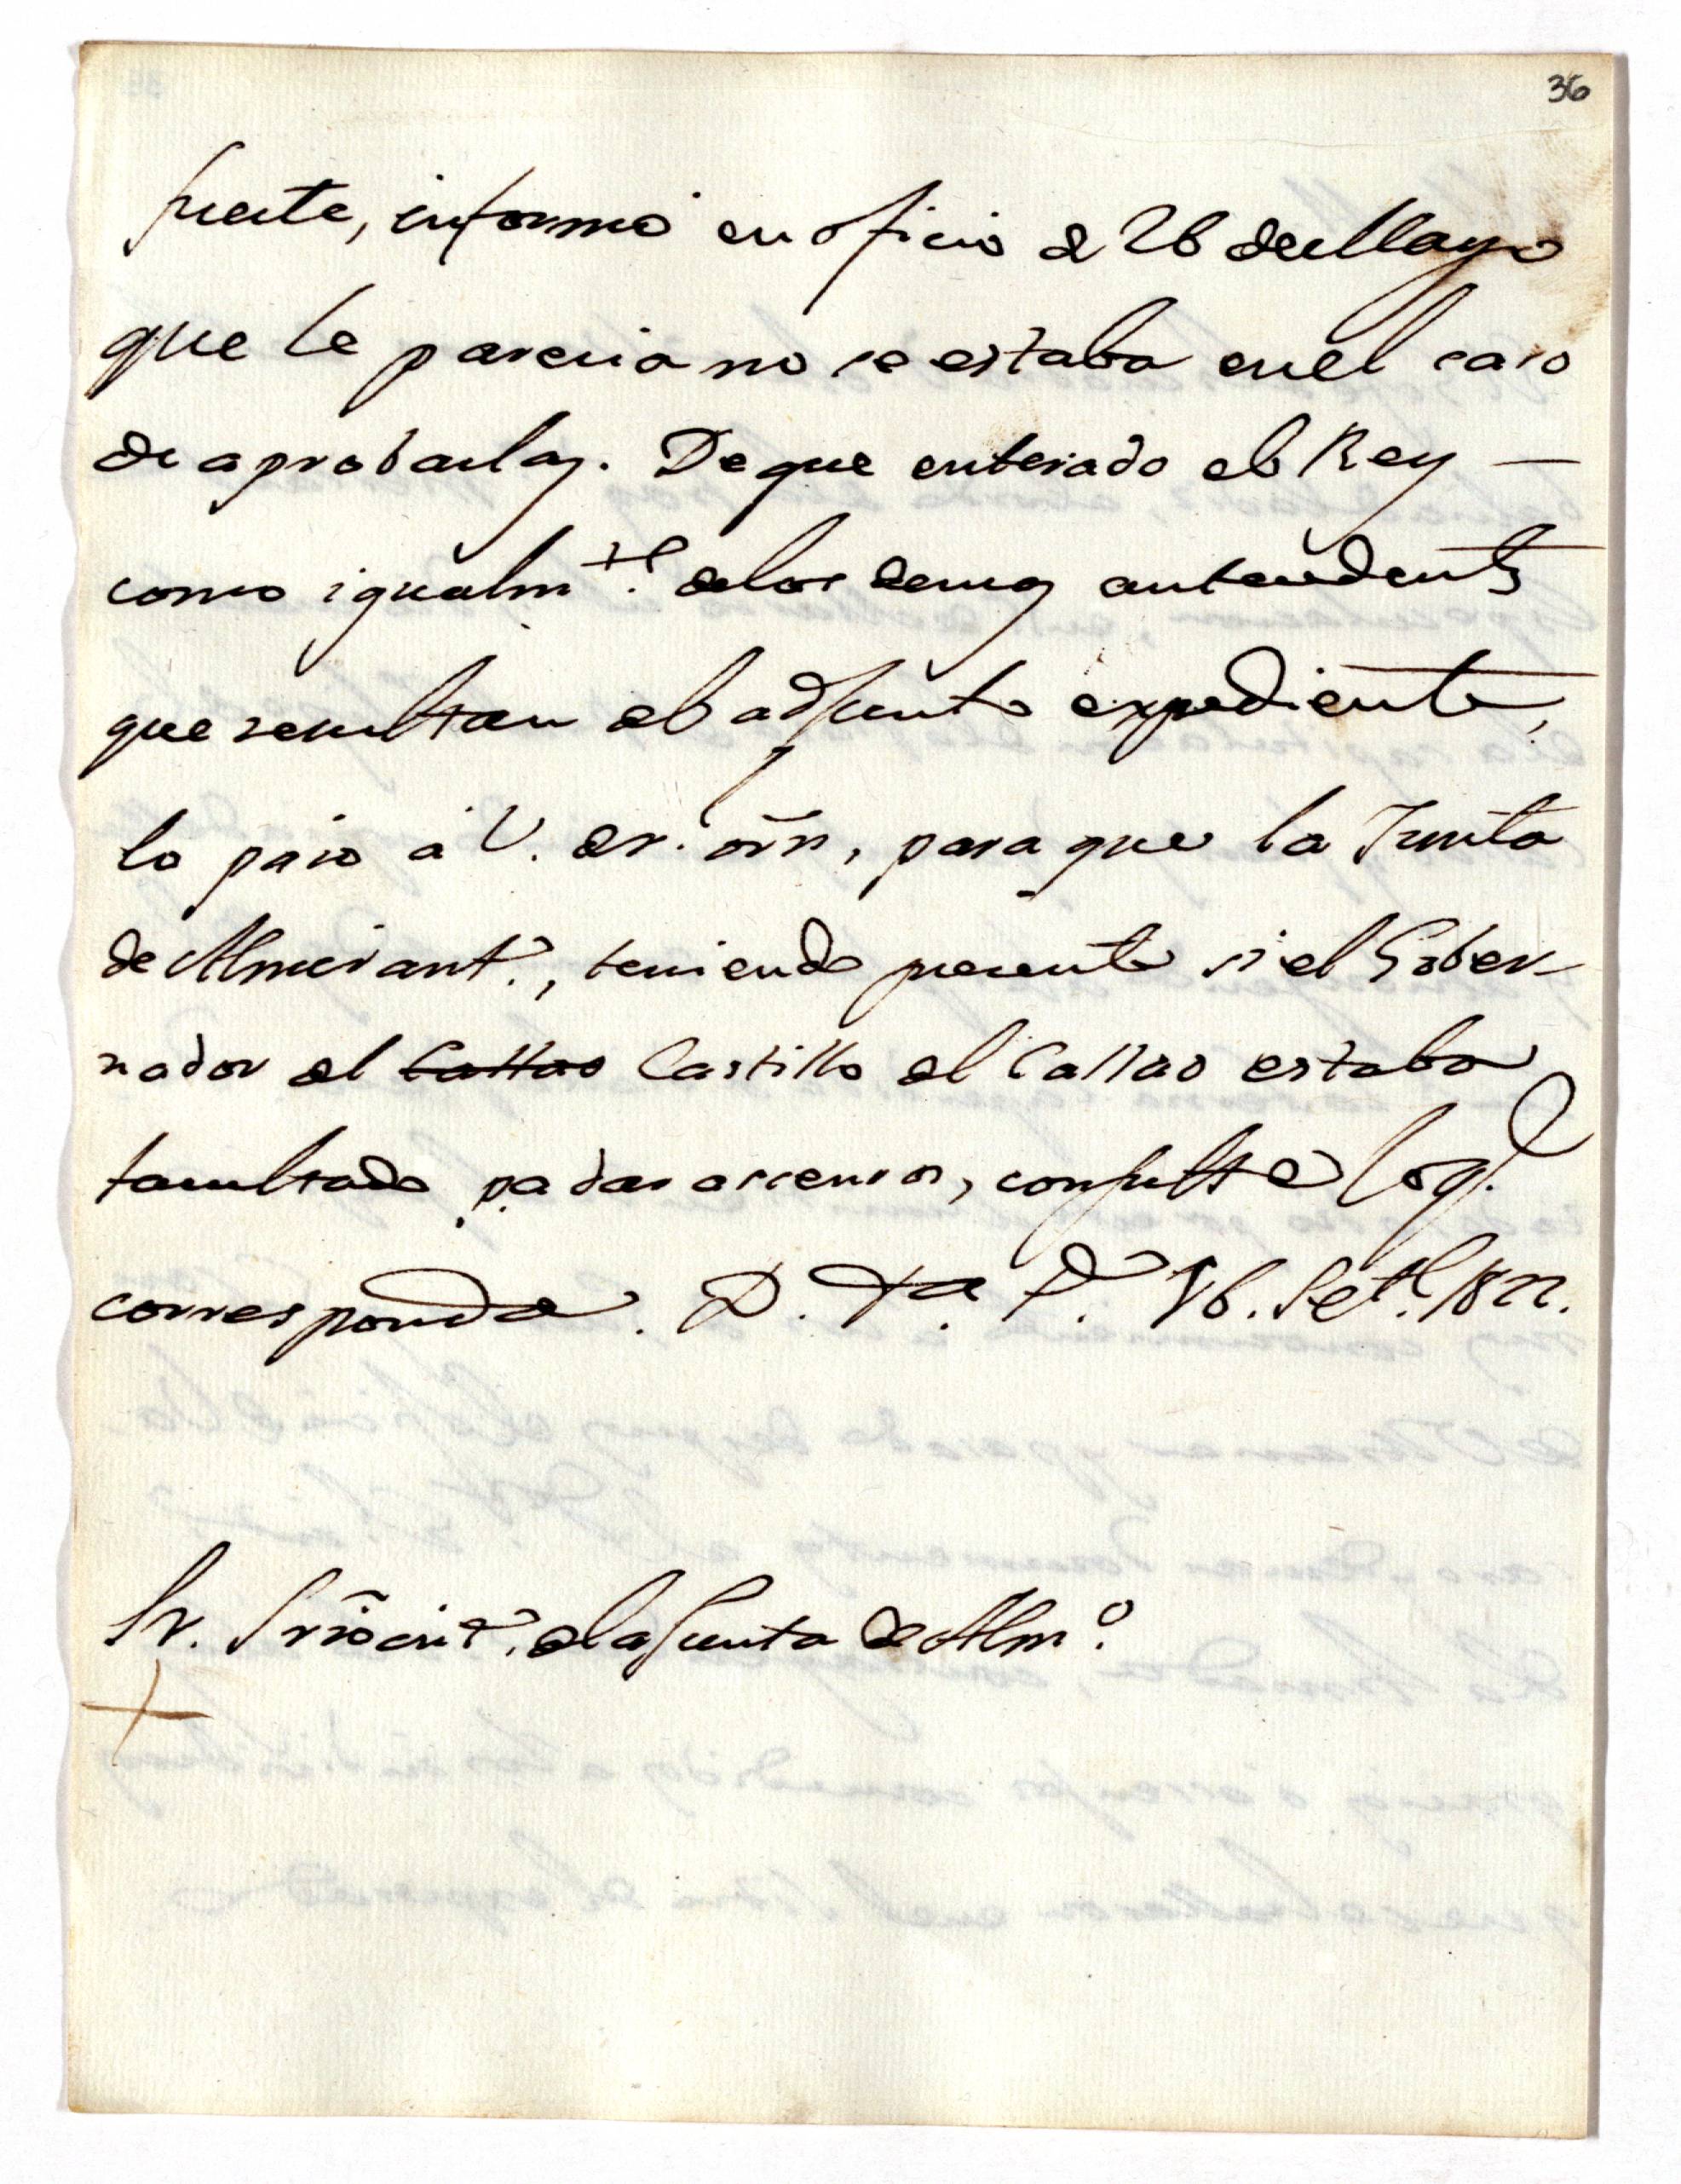 36
fuerte, informó en oficio de 26 de Mayo
que le parecia no se estaba en el caso
de aprobarlas. De que enterado el Rey —
como igualm.te de los demas antecedentes
que resultan del adjunto expediente,
lo paso á V. de r. orn, para que la Junta
de Almirant.o, teniendo presente si el Gober-
nador del Callao Castillo del Callao estaba
facultado pa dar ascensos, consulte lo q.e
corresponda. D. 16. Set.e 1822.
Sr. Srio int.o de la Junta de Alm.o